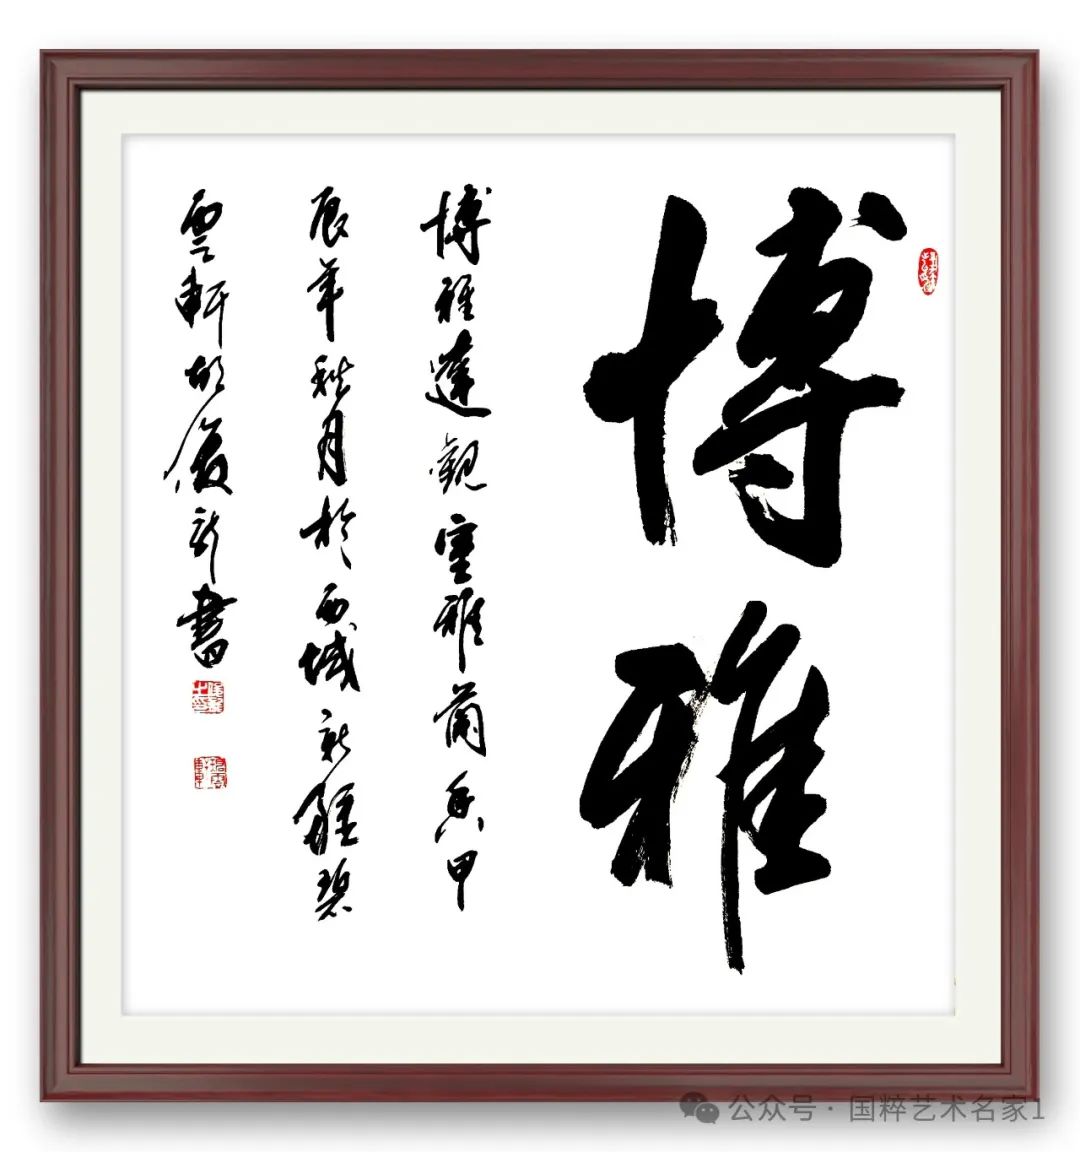 博雅
博雅達觀室雅蘭香甲
辰年秋月於西城新疆碧
雲軒胡俊新書
公众号·国粹艺术名家1